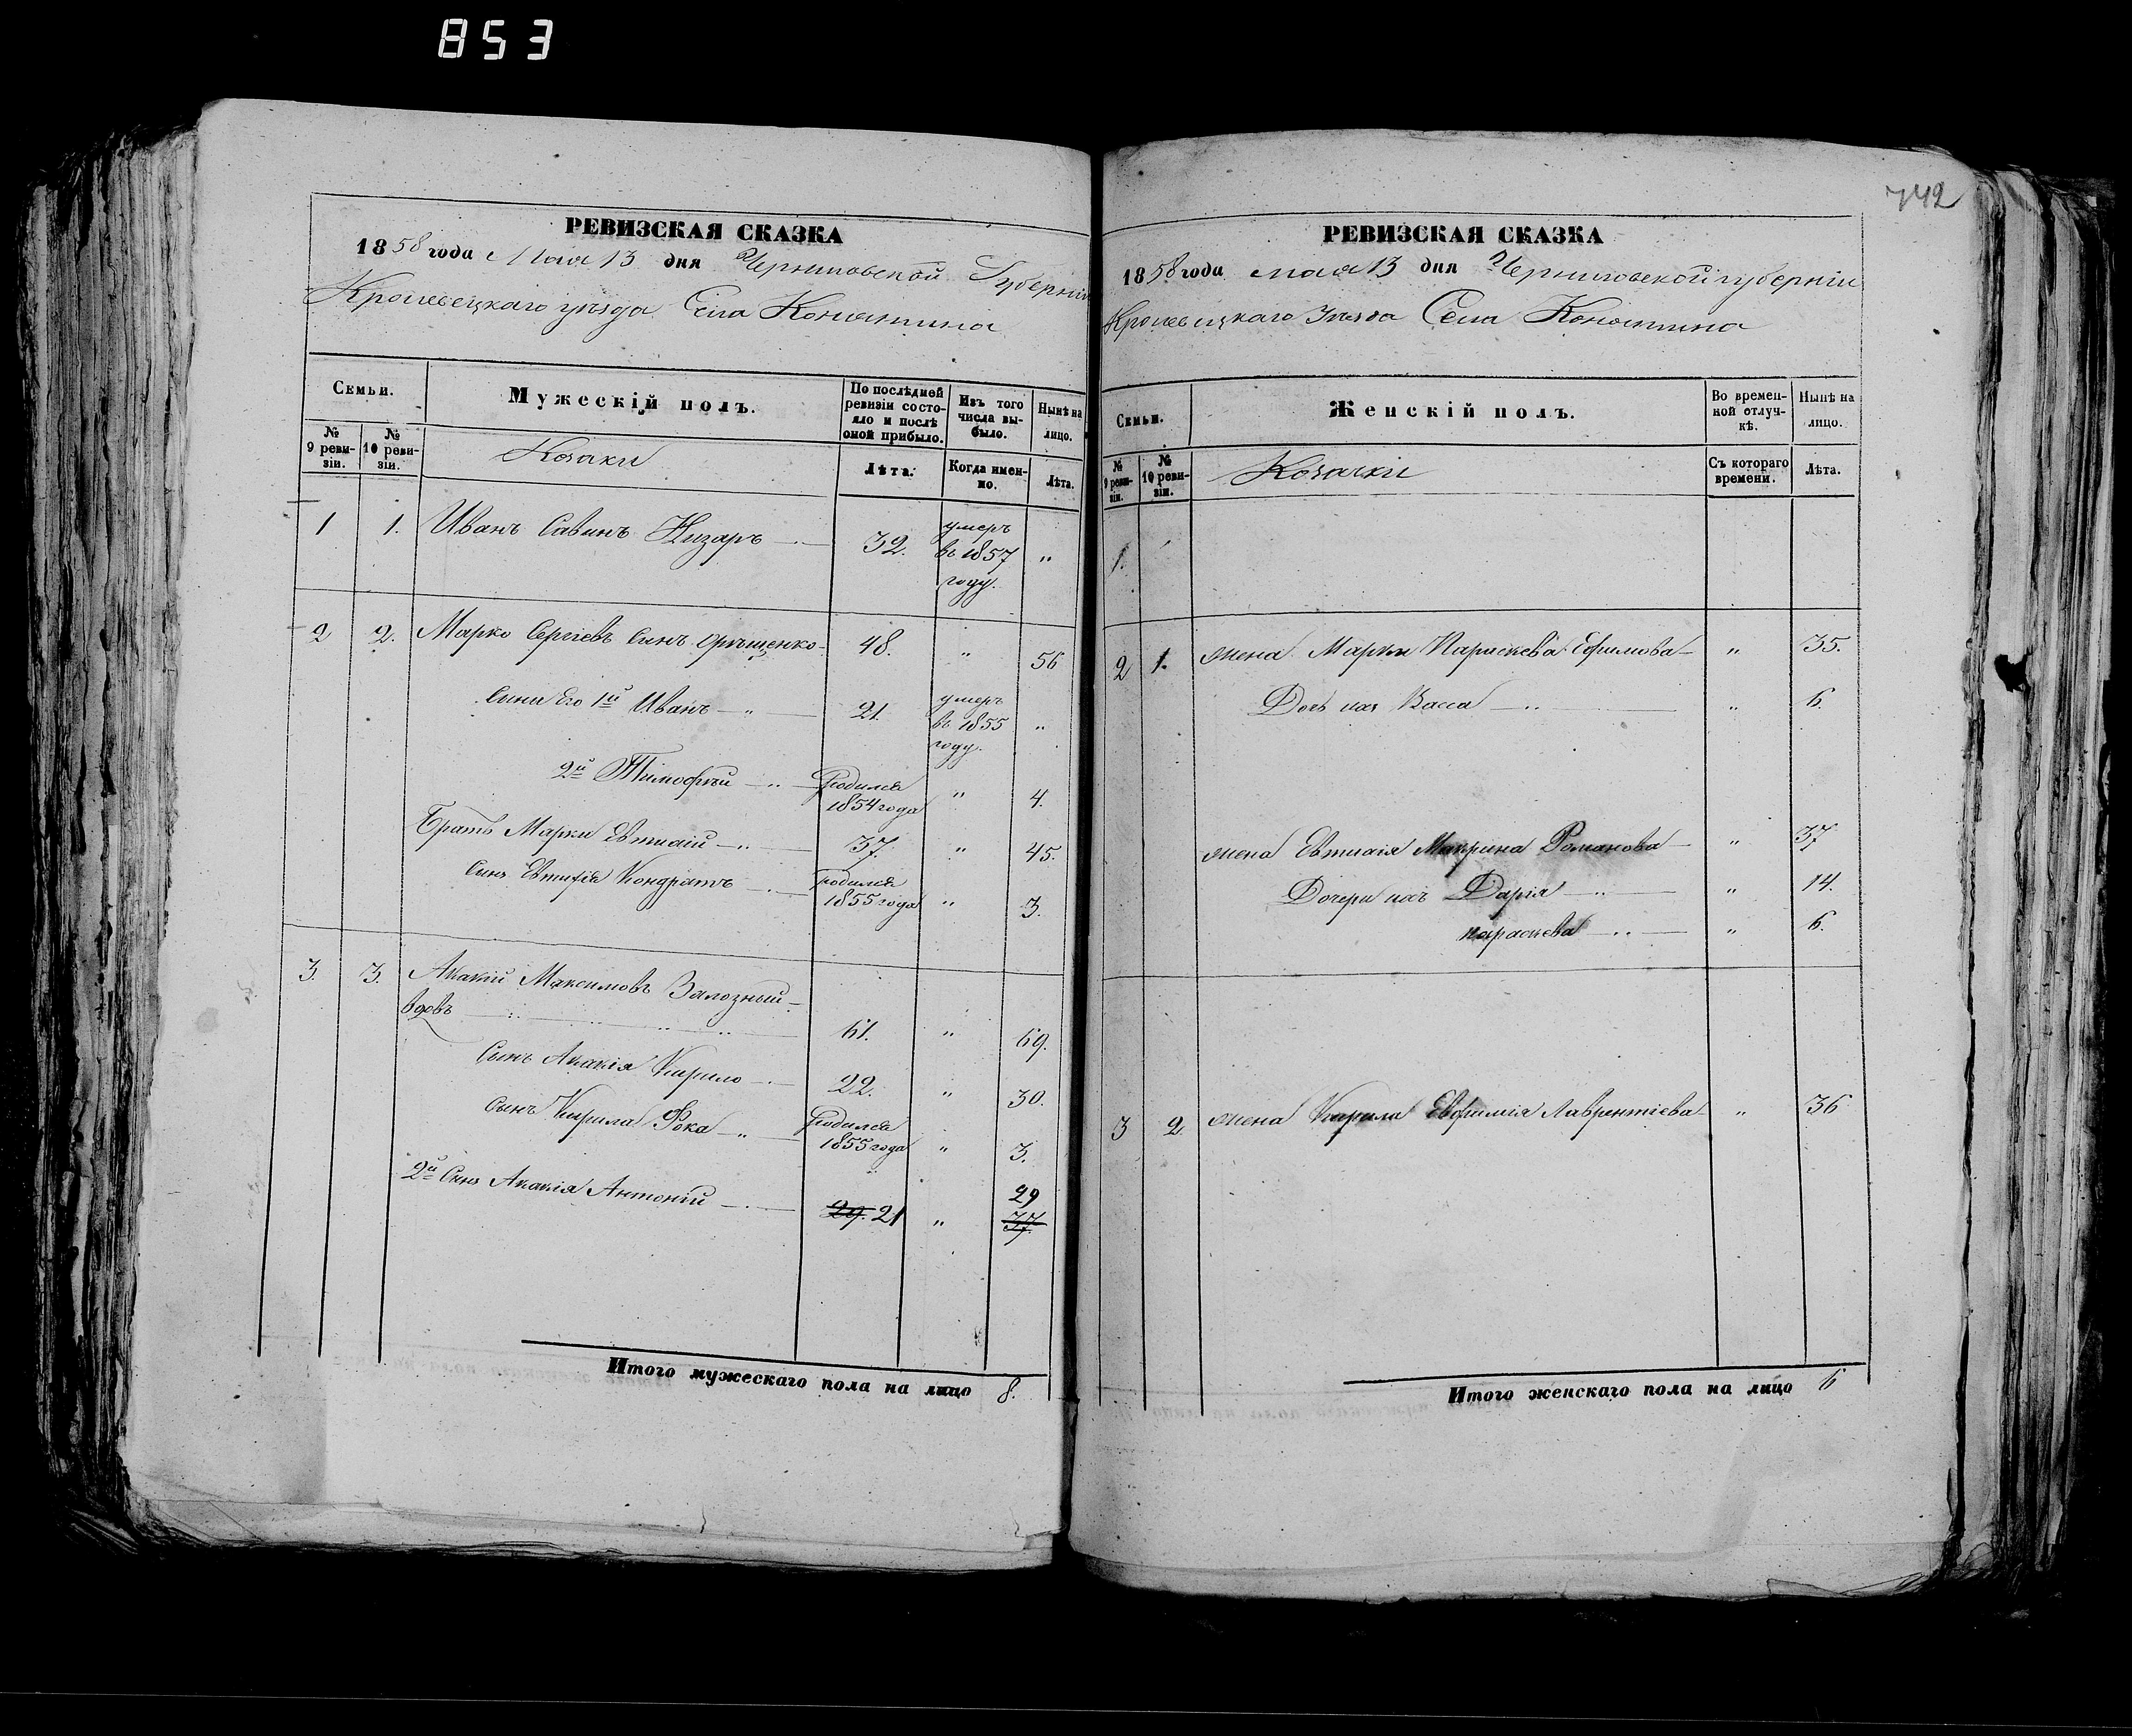 853
742
РЕВИЗСКАЯ СКАЗКА
1858 года Мая 13 дня Черниговской Губерніи
Кролевецкаго уѣзда Села Конятина
Семьи.
Мужескій полъ.
По послѣдней ревизіи состояло и послѣ оной прибыло.
Изъ того числа выбыло.
Нынѣ на лицо.
№ 9 ревизіи.
№ 10 ревизіи.
Козаки
Лѣта.
Когда именно.
Лѣта.
1 1. Иванъ Савинъ 32. умеръ въ 1857 году. "
2 2. Марко Сергіевъ Сынъ 48. " 56
Сини Его 1й Иванъ 21. умеръ въ 1855 году. "
2й Тимофѣй родился 1854 года " 4.
Братъ Марки Евтихій 37. " 45.
Сынъ Евтихія Кондратъ родился 1855 года " 3.
3. 3. Акакій Максимовъ Залозный
вдовъ 61. " 69.
Сынъ Акакія Кирило 22. " 30.
Сынъ Кирила Фока родился 1855 года " 3.
2й Сынъ Акакія Антоній 29. 21 " 29
37.
Итого мужескаго пола на лицо 8.
РЕВИЗСКАЯ СКАЗКА
1858 года мая 13 дня Черниговской губерніи
Кролевецкаго Уѣзда Села Конятина
Семьи.
Женскій полъ.
Во временной отлучкѣ.
Нынѣ на лицо.
№ 9 ревизіи.
№ 10 ревизіи.
Козачки
Съ котораго времени.
Лѣта.
1.
2 1. жена Марки Параскева Ефимова " 35.
Дочь ихъ Васса " 6.
жена Евтихія Макрина Романова " 37
Дочери ихъ Дарія " 14.
параскева " 6.
3 2. жена Кирила Евфимія Лаврентіева " 36
Итого женскаго пола на лицо 6